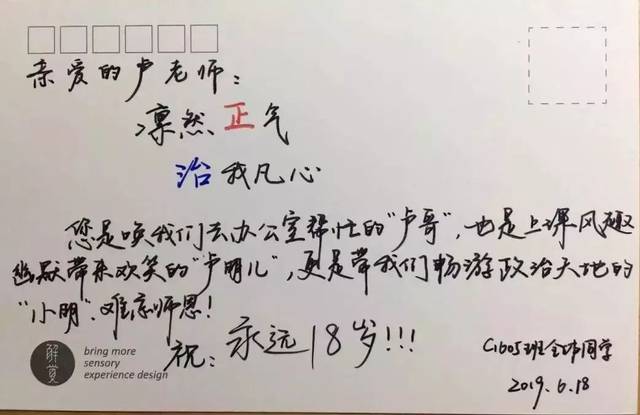 亲爱的卢老师：
凛然正气
治我凡心
您是唤我们去办公室帮忙的"卢哥"，也是上课风趣
幽默带来欢笑的"卢明儿"，更是带我们畅游政治天地的
"小明"，难忘师恩！
祝：永远18岁!!!
C1605班全体同学
2019.6.18
解賞
bring more
sensory
experience design